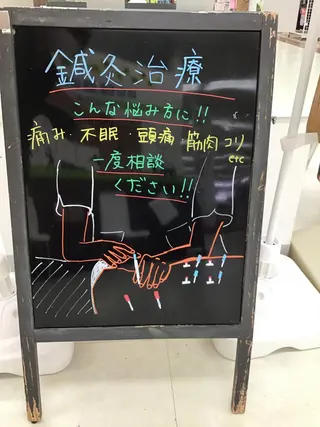 鍼灸治療
こんな悩み方に!!
痛み・不眠・頭痛・筋肉コリ
etc
一度相談
ください!!